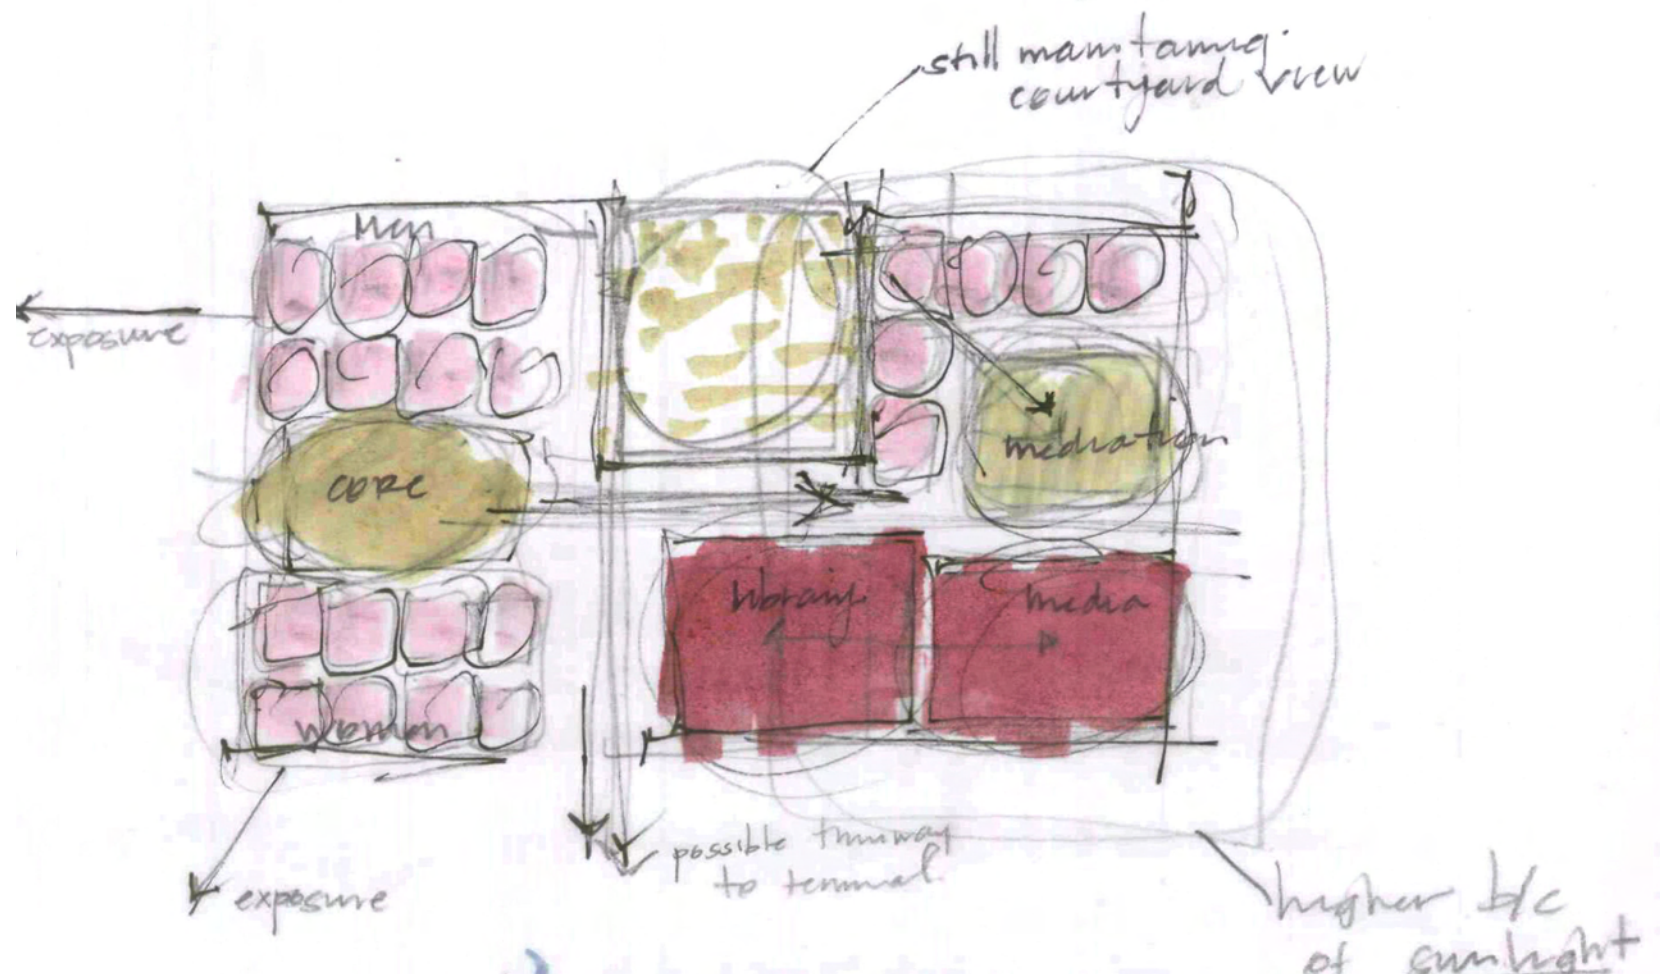 still maintaining
courtyard view
Men
exposure
core
mediation
library
media
women
possible thruway
to terminal
exposure
higher b/c
of sunlight